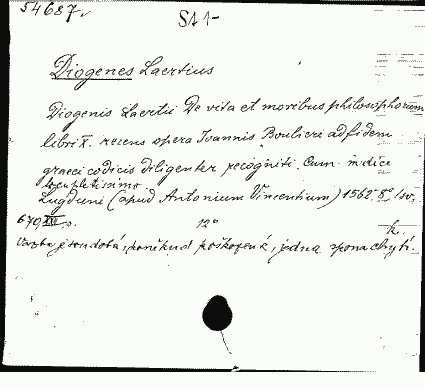 54687.
SA 1-
Diogenes Laertius
Diogenis Laertii De vita et moribus philosophorum
libri X. recens opera Joannis Boulieri ad fidem
graeci codicis diligenter recogniti. Cum indice
locupletissimo
Lugduni (apud Antonium Vincentium) 1562. 8° 1 sv.
679 XX s. 12° k.
Vazba jsou dobá, koniku d poškozená, jedna spona chybí.